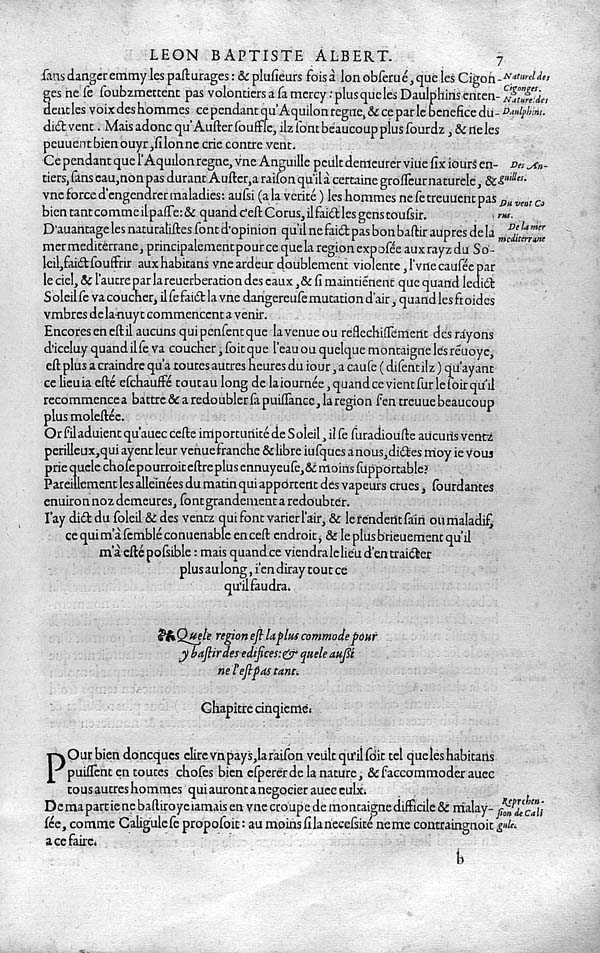 LEON BAPTISTE ALBERT. 7
ſans danger emmy les paſturages: & pluſieurs fois à lon obſerué, que les Cigon-
ges ne ſe ſoubzmettent pas volontiers a ſa mercy: plus que les Daulphins enten-
dent les voix des hommes cependant qu'Aquilon regne, & ce par le benefice du-
dict vent. Mais adonc qu'Auſter ſouffle, ilz ſont beaucoup plus ſourdz, & ne les
peuuent bien ouyr, ſi lon ne crie contre vent.
Ce pendant que l'Aquilon regne, vne Anguille peult demeurer viue ſix iours en-
tiers, ſans eau, non pas durant Auſter, a raiſon qu'il à certaine groſſeur naturele, &
vne force d'engendrer maladies: auſsi (a la verité) les hommes ne ſe treuuent pas
bien tant comme il paſſe: & quand c'eſt Corus, il faict les gens touſsir.
D'auantage les naturaliſtes ſont d'opinion qu'il ne faict pas bon baſtir aupres de la
mer mediterrane, principalement pour ce que la region expoſée aux rayz du So-
leil, faict ſouffrir aux habitans vne ardeur doublement violente, l'vne cauſée par
le ciel, & l'autre par la reuerberation des eaux, & ſi maintiénent que quand ledict
Soleil ſe va coucher, il ſe faict la vne dangereuſe mutation d'air, quand les froides
vmbres de la nuyt commencent a venir.
Encores en eſt il aucuns qui penſent que la venue ou reflechiſſement des rayons
d'iceluy quand il ſe va coucher, ſoit que l'eau ou quelque montaigne les réuoye,
eſt plus a craindre qu'a toutes autres heures du iour, a cauſe (diſent ilz) qu'ayant
ce lieu ia eſté eſchauffé tout au long de la iournée, quand ce vient ſur le ſoir qu'il
recommence a battre & a redoubler ſa puiſſance, la region ſ'en treuue beaucoup
plus moleſtée.
Or ſ'il aduient qu'auec ceſte importunité de Soleil, il ſe ſuradiouſte aucuns ventz
perilleux, qui ayent leur venue franche & libre iuſques a nous, dictes moy ie vous
prie quele choſe pourroit eſtre plus ennuyeuſe, & moins ſupportable?
Pareillement les alleinées du matin qui apportent des vapeurs crues, ſourdantes
enuiron noz demeures, ſont grandement a redoubter.
I'ay dict du ſoleil & des ventz qui font varier l'air, & le rendent ſain ou maladif,
ce qui m'à ſemblé conuenable en ceſt endroit, & le plus brieuement qu'il
m'à eſté poſsible: mais quand ce viendra le lieu d'en traicter
plus au long, i'en diray tout ce
qu'il faudra.
Naturel des
Cigonges.
Nature des
Daulphins.
Des An-
guilles.
Du vent Co
rus.
De la mer
mediterrane
Quele region eſt la plus commode pour
y baſtir des edifices: & quele auſsi
ne l'eſt pas tant.
Chapitre cinqieme.
POur bien doncques elire vn pays, la raiſon veult qu'il ſoit tel que les habitans
puiſſent en toutes choſes bien eſperer de la nature, & ſ'accommoder auec
tous autres hommes qui auront a negocier auec eulx.
De ma part ie ne baſtiroye iamais en vne croupe de montaigne difficile & malay-
ſée, comme Caligule ſe propoſoit: au moins ſi la neceſsité ne me contraingnoit
a ce faire.
Reprehen-
ſion de Cali
gule.
b